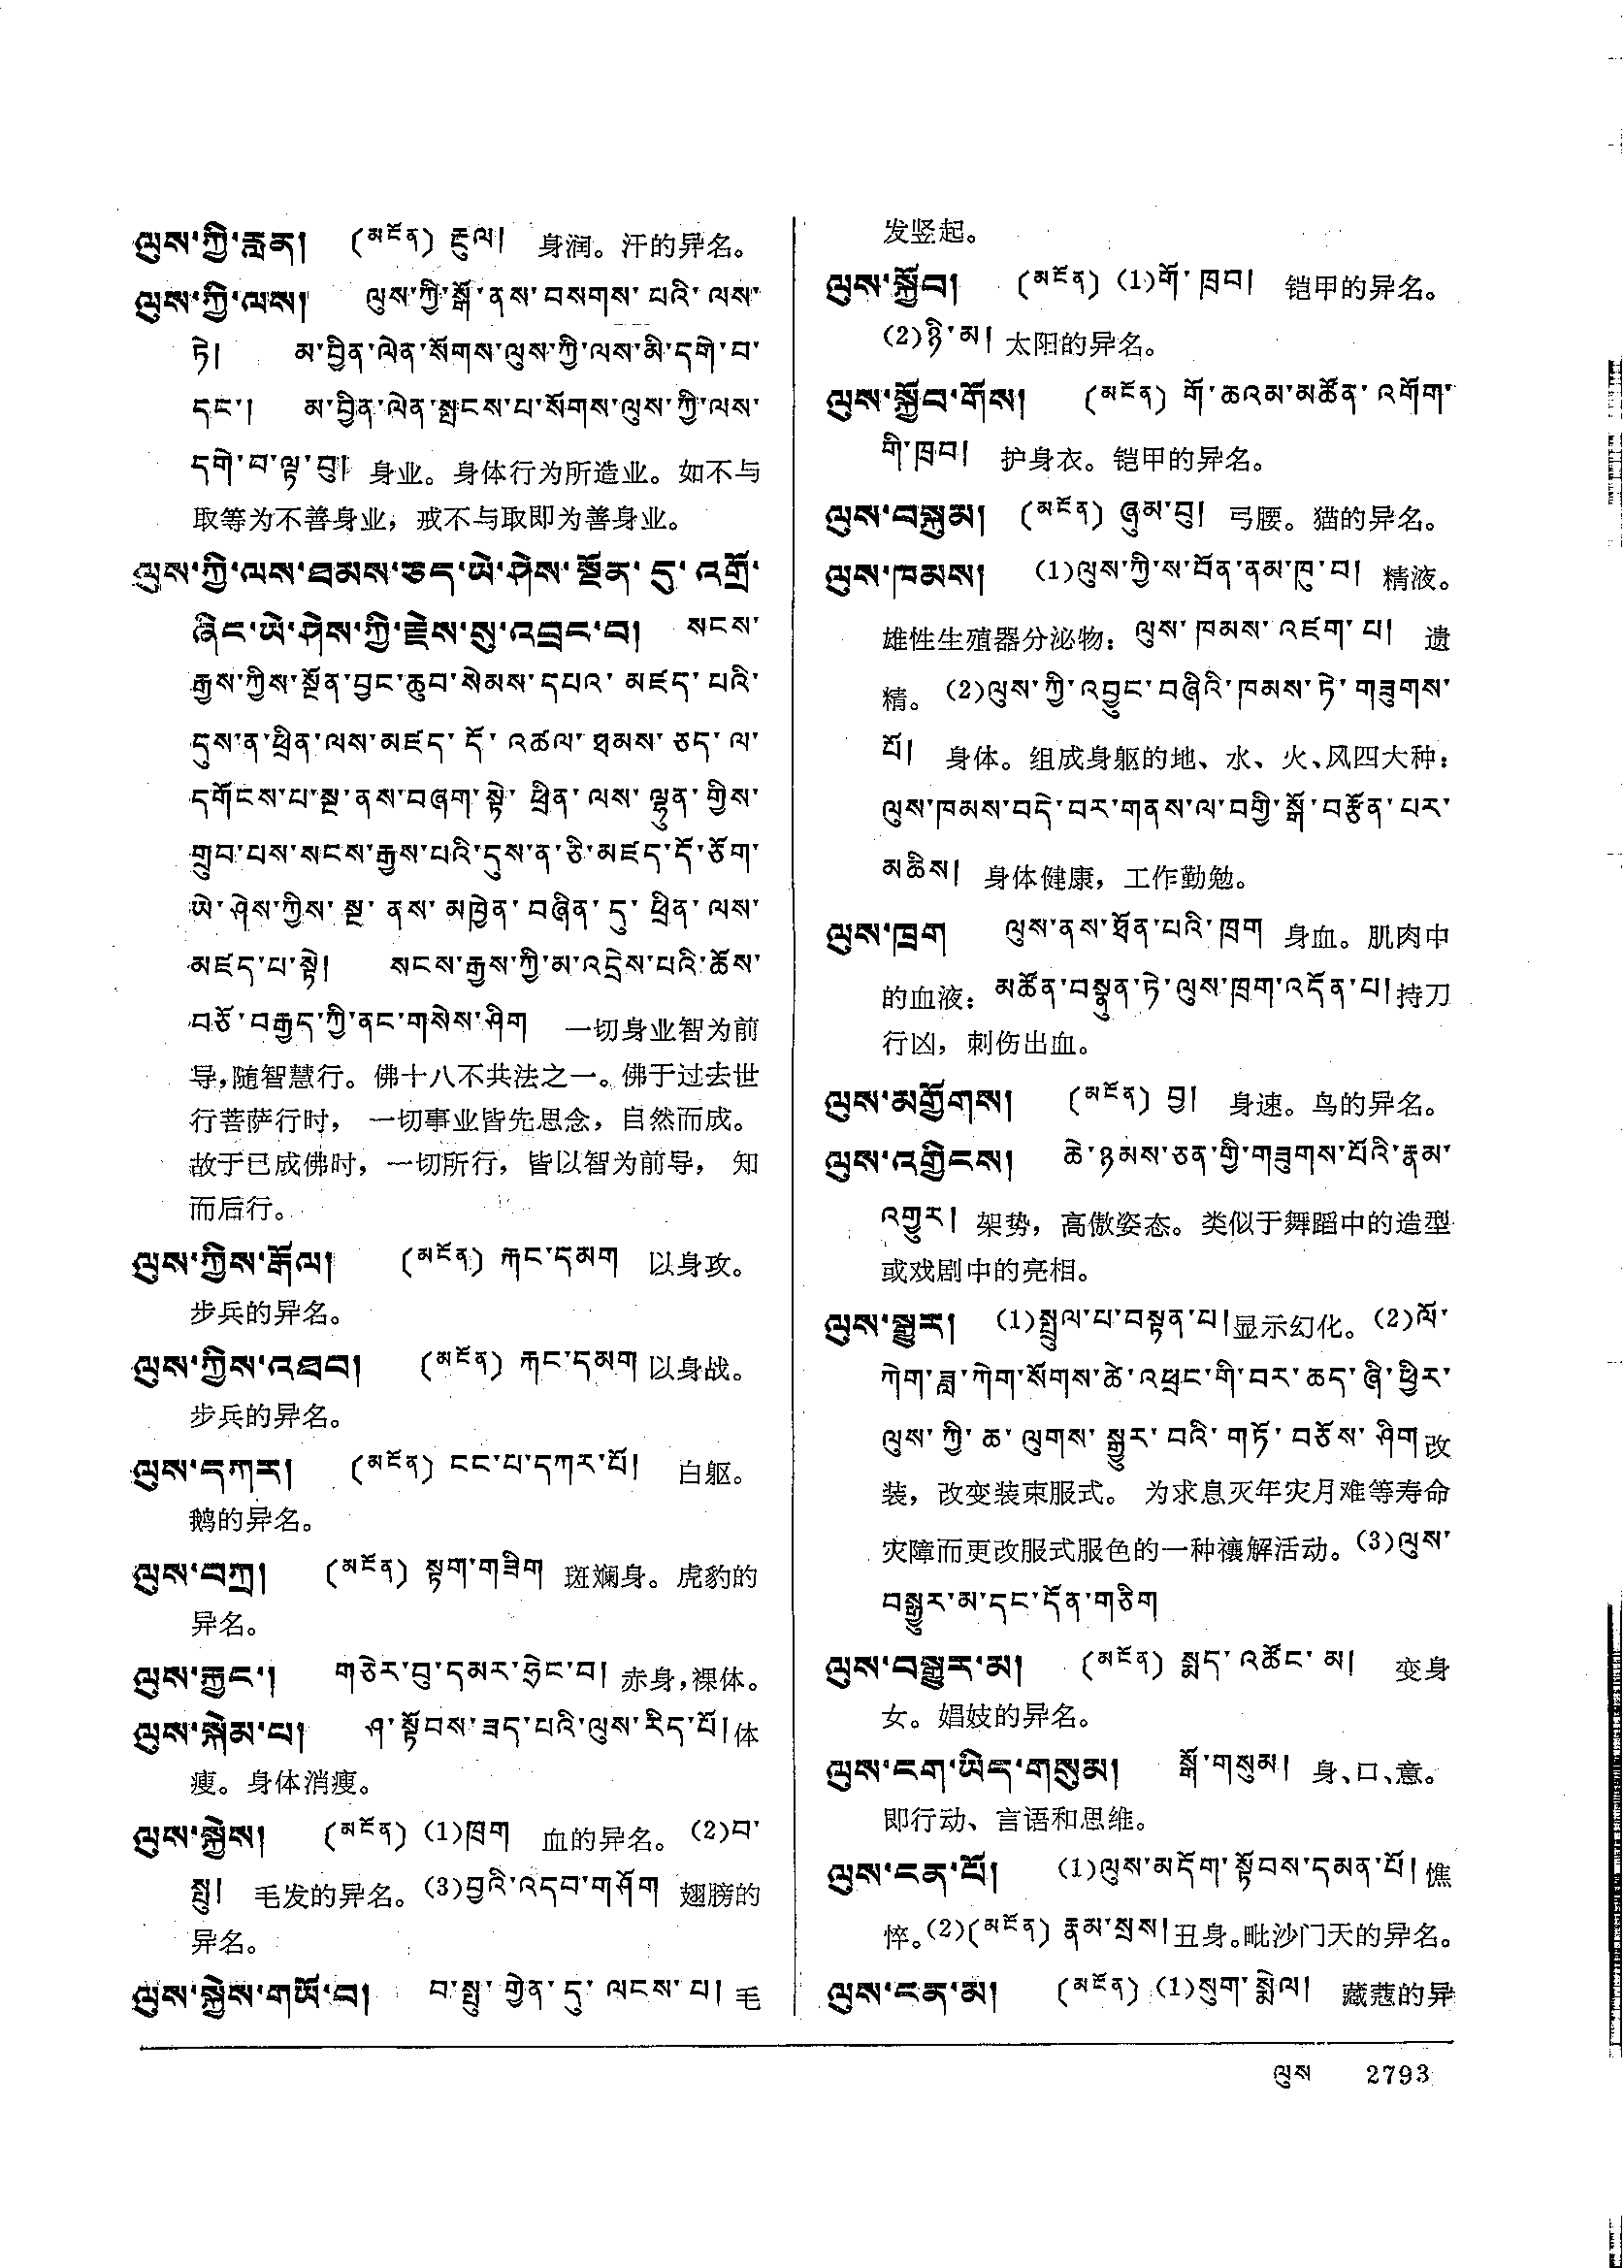 ལུས་ཀྱི་རླན། (མངོན) རྡུལ། 身润。汗的异名。
ལུས་ཀྱི་ལས། ལུས་ཀྱི་སྒོ་ནས་བསགས་པའི་ལས་
ཏེ། མ་བྱིན་ལེན་སོགས་ལུས་ཀྱི་ལས་མི་དགེ་བ་
དང་། མ་བྱིན་ལེན་སྤངས་པ་སོགས་ལུས་ཀྱི་ལས་
དགེ་བ་ལྟ་བུ། 身业。身体行为所造业。如不与
取等为不善身业，戒不与取即为善身业。
ལུས་ཀྱི་ལས་ཐམས་ཅད་ཡེ་ཤེས་སྔོན་དུ་འགྲོ་
ཞིང་ཡེ་ཤེས་ཀྱི་རྗེས་སུ་འབྲང་བ། སངས་
རྒྱས་ཀྱིས་སྔོན་བྱང་ཆུབ་སེམས་དཔའ་མཛད་པའི་
དུས་ན་ཕྲིན་ལས་མཛད་དོ་འཚལ་ཐམས་ཅད་ལ་
དགོངས་པ་སྔ་ནས་བཞག་སྟེ་ཕྲིན་ལས་ལྷུན་གྱིས་
གྲུབ་པས་སངས་རྒྱས་པའི་དུས་ན་ཅི་མཛད་དོ་ཅོག་
ཡེ་ཤེས་ཀྱིས་སྔ་ནས་མཁྱེན་བཞིན་དུ་ཕྲིན་ལས་
མཛད་པ་སྟེ། སངས་རྒྱས་ཀྱི་མ་འདྲེས་པའི་ཆོས་
བཅོ་བརྒྱད་ཀྱི་ནང་གསེས་ཤིག 一切身业智为前
导,随智慧行。佛十八不共法之一。佛于过去世
行菩萨行时，一切事业皆先思念，自然而成。
故于已成佛时，一切所行，皆以智为前导，知
而后行。
ལུས་ཀྱིས་རྒོལ། (མངོན) རྐང་དམག 以身攻。
步兵的异名。
ལུས་ཀྱིས་འཐབ། (མངོན) རྐང་དམག 以身战。
步兵的异名。
ལུས་དཀར། (མངོན) ངང་པ་དཀར་པོ། 白躯。
鹅的异名。
ལུས་བཀྲ། (མངོན) སྟག་གཟིག 斑斓身。虎豹的
异名。
ལུས་རྐྱང་། གཅེར་བུ་དམར་ཧྲེང་བ། 赤身,裸体。
ལུས་སྐེམ་པ། ཤ་སྟོབས་ཟད་པའི་ལུས་རིད་པོ། 体
瘦。身体消瘦。
ལུས་སྐྱེས། (མངོན) (1)ཁྲག 血的异名。(2)བ་
སྤུ། 毛发的异名。(3)བྱའི་འདབ་གཤོག 翅膀的
异名。
ལུས་སྐྱེས་གཡོ་བ། བ་སྤུ་གྱེན་དུ་ལངས་པ། 毛
发竖起。
ལུས་སྐྱོབ། (མངོན) (1)གོ་ཁྲབ། 铠甲的异名。
(2)ཉི་མ། 太阳的异名。
ལུས་སྐྱོབ་གོས། (མངོན) གོ་ཆའམ་མཚོན་འགོག་
གི་ཁྲབ། 护身衣。铠甲的异名。
ལུས་བསྐུམ། (མངོན) ཞུམ་བུ། 弓腰。猫的异名。
ལུས་ཁམས། (1)ལུས་ཀྱི་ས་བོན་ནམ་ཁུ་བ། 精液。
雄性生殖器分泌物：ལུས་ཁམས་འཛག་པ། 遗
精。(2)ལུས་ཀྱི་འབྱུང་བཞིའི་ཁམས་ཏེ་གཟུགས་
པོ། 身体。组成身躯的地、水、火、风四大种：
ལུས་ཁམས་བདེ་བར་གནས་ལ་བགྱི་སྒོ་བརྩོན་པར་
མཆིས། 身体健康，工作勤勉。
ལུས་ཁྲག ལུས་ནས་ཐོན་པའི་ཁྲག 身血。肌肉中
的血液：མཚོན་བསྣུན་ཏེ་ལུས་ཁྲག་འདོན་པ། 持刀
行凶，刺伤出血。
ལུས་མགྱོགས། (མངོན) བྱ། 身速。鸟的异名。
ལུས་འགྱིངས། ཆེ་ཉམས་ཅན་གྱི་གཟུགས་པོའི་རྣམ་
འགྱུར། 架势，高傲姿态。类似于舞蹈中的造型
或戏剧中的亮相。
ལུས་སྒྱུར། (1)སྤྲུལ་པ་བསྟན་པ། 显示幻化。(2)ལོ་
ཀེག་ཟླ་ཀེག་སོགས་ཚེ་འཕྲང་གི་བར་ཆད་ཞི་ཕྱིར་
ལུས་ཀྱི་ཆ་ལུགས་སྒྱུར་བའི་གཏོ་བཅོས་ཤིག 改
装，改变装束服式。为求息灭年灾月难等寿命
灾障而更改服式服色的一种禳解活动。(3)ལུས་
བསྒྱུར་མ་དང་དོན་གཅིག
ལུས་བསྒྱུར་མ། (མངོན) སྨད་འཚོང་མ། 变身
女。娼妓的异名。
ལུས་ངག་ཡིད་གསུམ། སྒོ་གསུམ། 身、口、意。
即行动、言语和思维。
ལུས་ངན་པོ། (1)ལུས་མདོག་སྟོབས་དམན་པོ། 憔
悴。(2)(མངོན) རྣམ་སྲས། 丑身。毗沙门天的异名。
ལུས་ངན་མ། (མངོན) (1)སུག་སྨེལ། 藏蔻的异
ལུས 2793